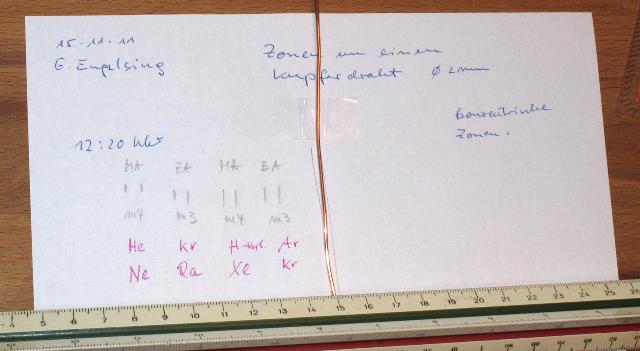 15.11.11
G. Engelsing
Zonen um einen
Kupferdraht ⌀ 2mm
konzentrische
Zonen.
12:20 Uhr
MA EA HA EA
m4 m3 m4 m3
He Kr H-verb. Ar
Ne Ra Xe Kr
4 5 6 7 8 9 10 11 12 13 14 15 16 17 18 19 20 21 22 23 24 25 26